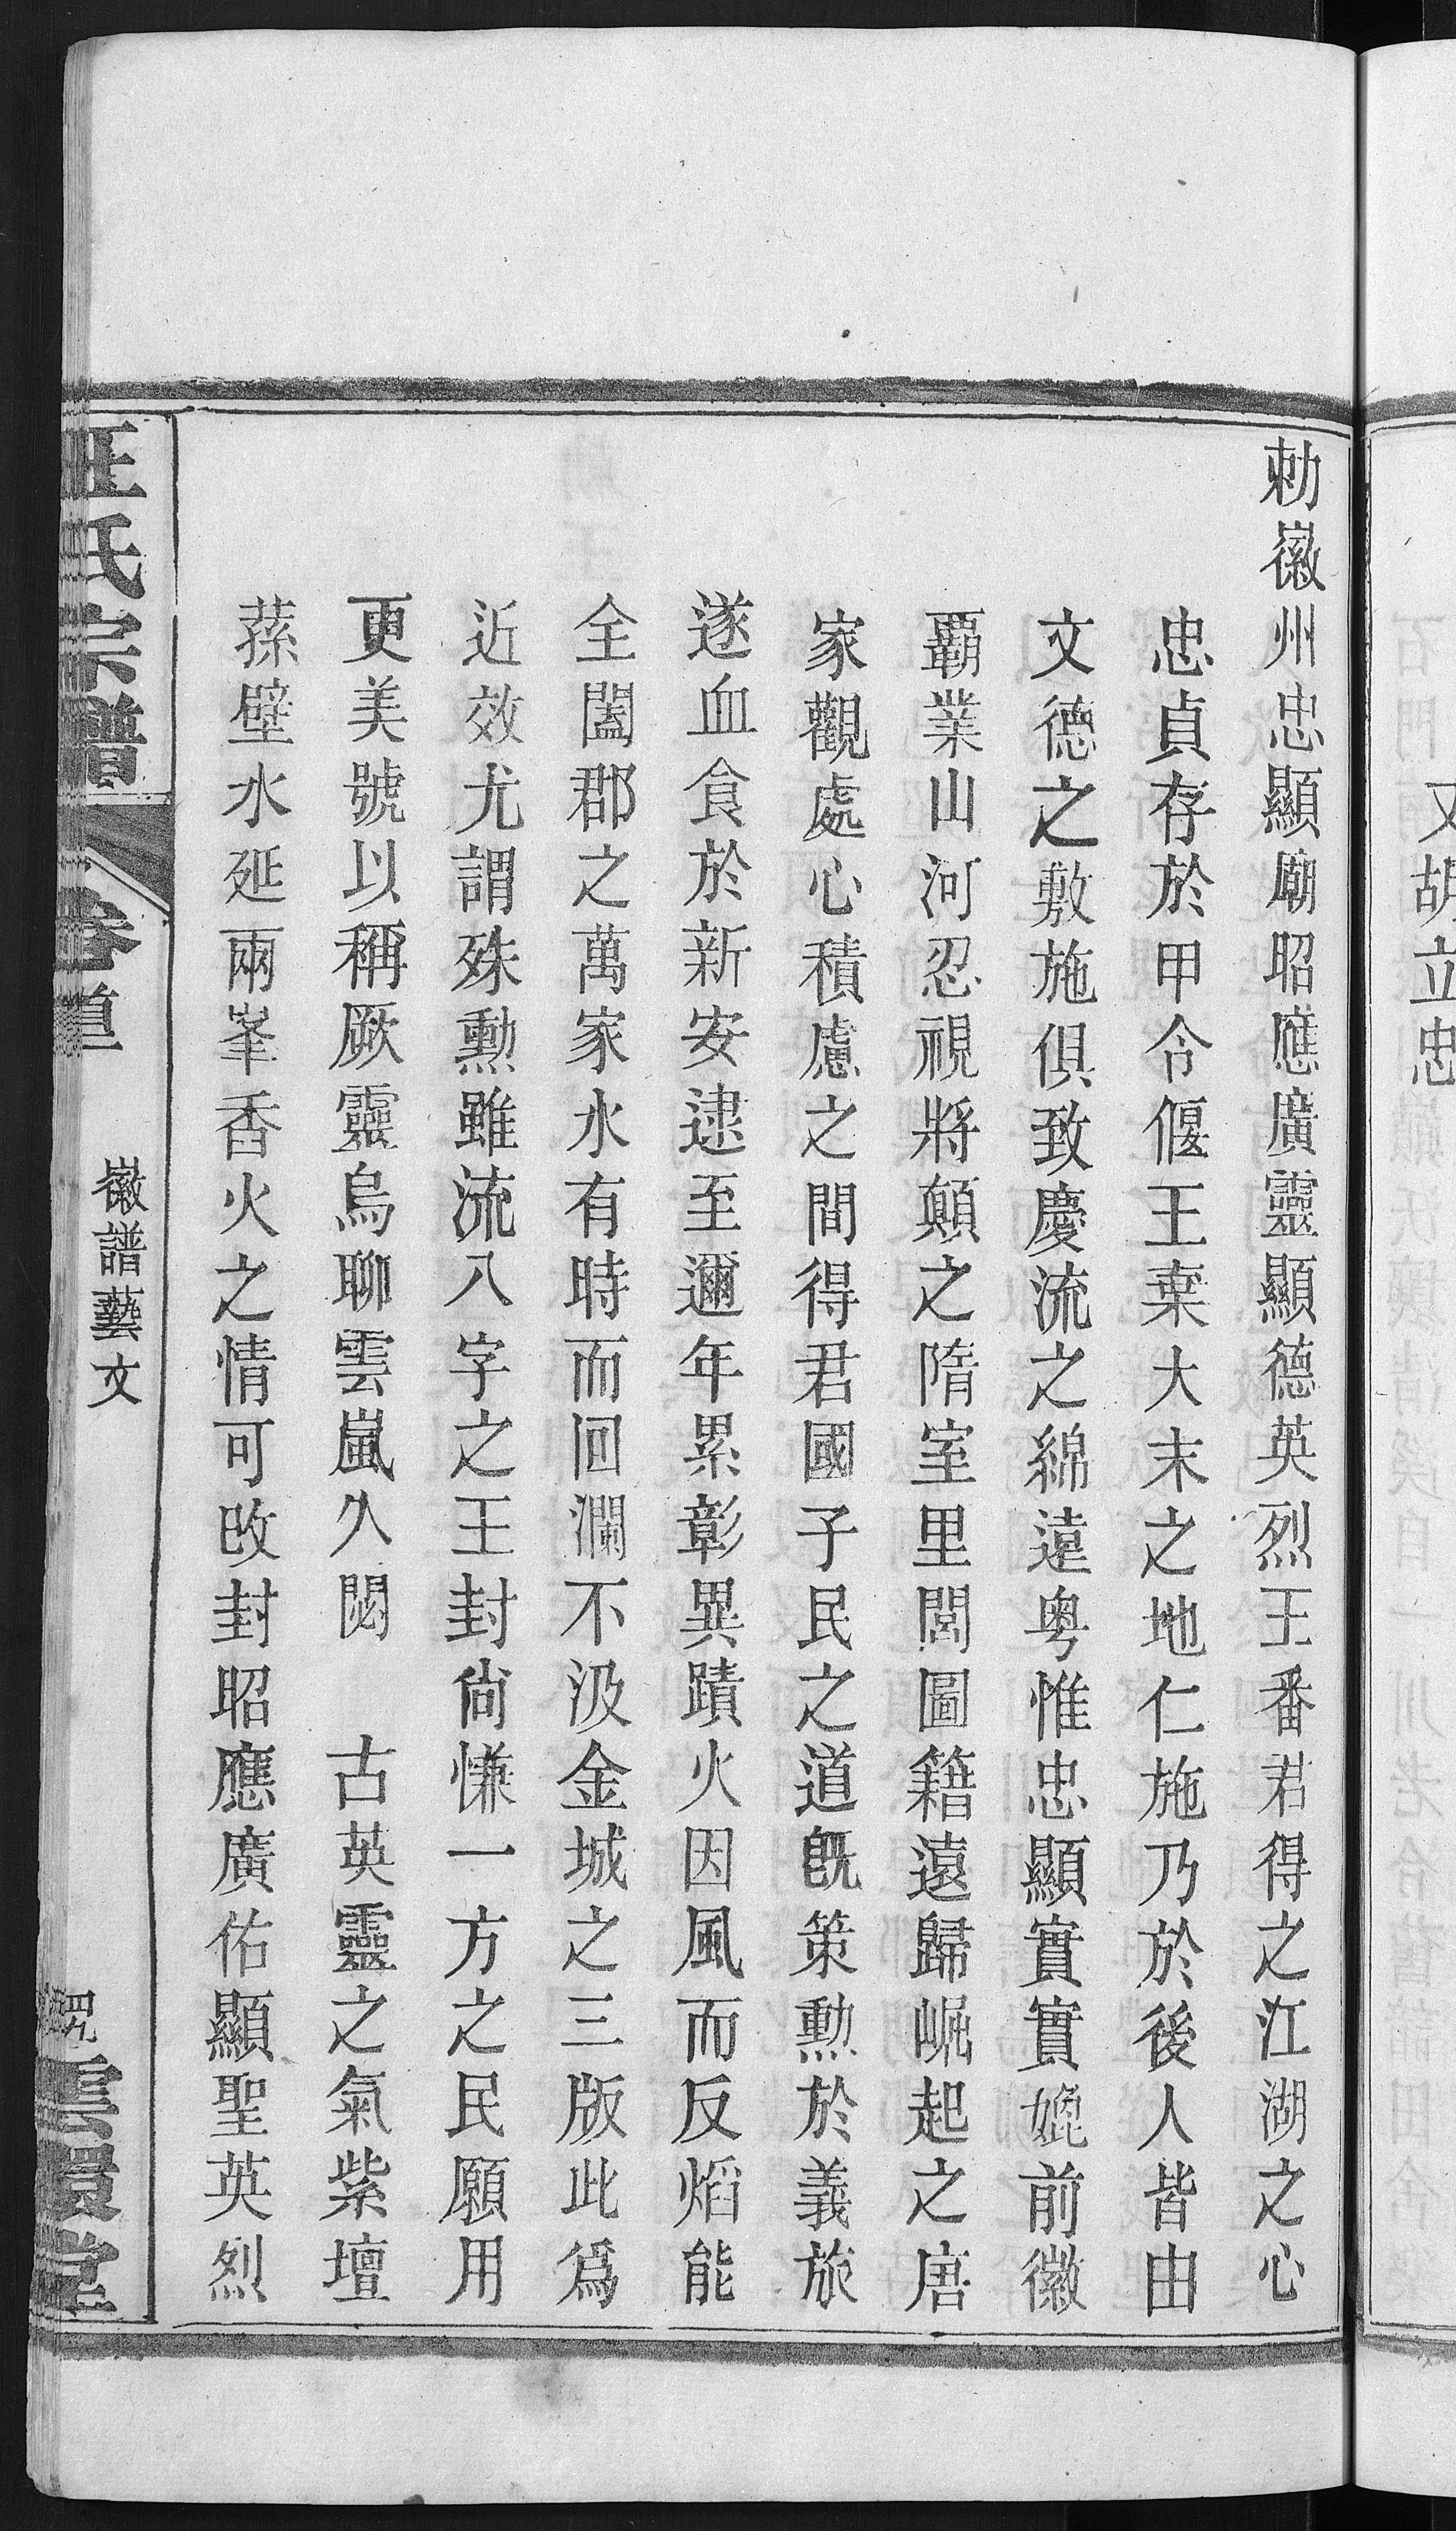 勅徽州忠顯廟昭應廣靈顯德英烈王番君得之江湖之心
忠貞存於甲令偃王棄大末之地仁施乃於後人皆由
文德之敷施俱致慶流之綿遠粤惟忠顯實實媲前徽
覇業山河忍視將顛之隋室里閭圖籍遠歸崛起之唐
家觀處心積慮之間得君國子民之道旣策勲於義旅
遂血食於新安逮至邇年累彰異蹟火因風而反熖能
全闔郡之萬家水有時而回瀾不汲金城之三版此爲
近效尤謂殊勲雖流八字之王封尙慊一方之民願用
更美號以稱厥靈烏聊雲嵐久閟　古英靈之氣紫壇
蓀壁水延兩峯香火之情可改封昭應廣佑顯聖英烈
汪氏宗譜
卷首
徽譜藝文
四九
雲環堂
又胡立忠